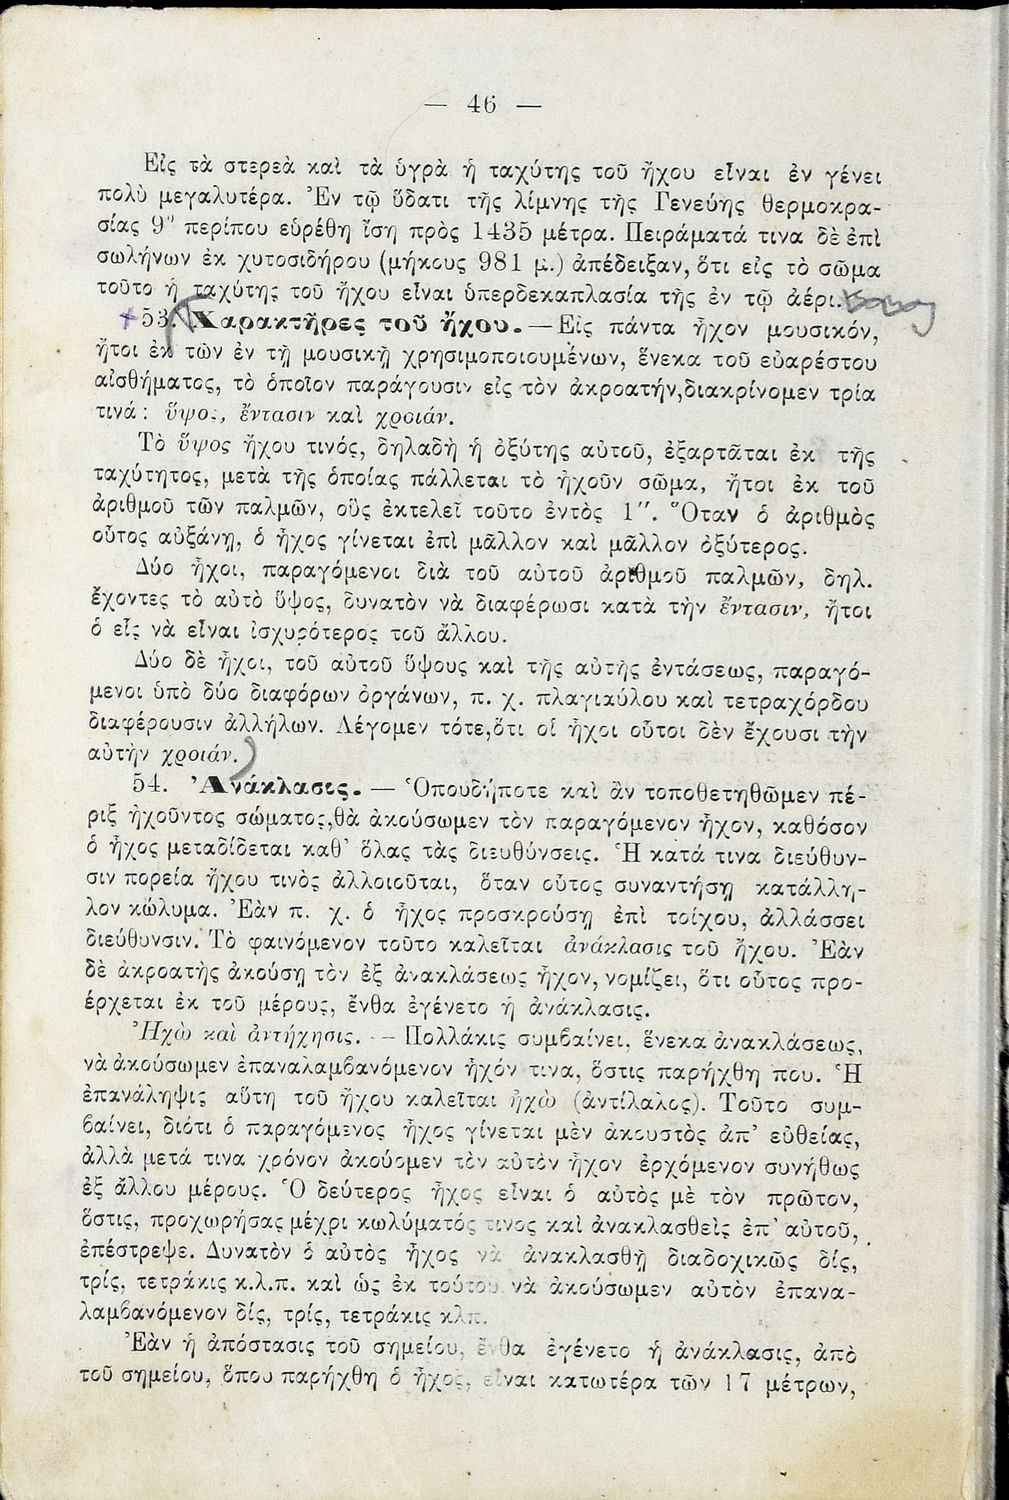 — 46 —
Εἰς τὰ στερεὰ καὶ τὰ ὑγρὰ ἡ ταχύτης τοῦ ἤχου εἶναι ἐν γένει
πολὺ μεγαλυτέρα. Ἐν τῷ ὕδατι τῆς λίμνης τῆς Γενεύης θερμοκρα-
σίας 9° περίπου εὑρέθη ἴση πρὸς 1435 μέτρα. Πειράματά τινα δὲ ἐπὶ
σωλήνων ἐκ χυτοσιδήρου (μήκους 981 μ.) ἀπέδειξαν, ὅτι εἰς τὸ σῶμα
τοῦτο ἡ ταχύτης τοῦ ἤχου εἶναι ὑπερδεκαπλασία τῆς ἐν τῷ ἀέρι.
53. Χαρακτῆρες τοῦ ἤχου. — Εἰς πάντα ἦχον μουσικόν,
ἤτοι ἐκ τῶν ἐν τῇ μουσικῇ χρησιμοποιουμένων, ἕνεκα τοῦ εὐαρέστου
αἰσθήματος, τὸ ὁποῖον παράγουσιν εἰς τὸν ἀκροατήν, διακρίνομεν τρία
τινά: ὕψος, ἔντασιν καὶ χροιάν.
Τὸ ὕψος ἤχου τινός, δηλαδὴ ἡ ὀξύτης αὐτοῦ, ἐξαρτᾶται ἐκ τῆς
ταχύτητος, μετὰ τῆς ὁποίας πάλλεται τὸ ἠχοῦν σῶμα, ἤτοι ἐκ τοῦ
ἀριθμοῦ τῶν παλμῶν, οὓς ἐκτελεῖ τοῦτο ἐντὸς 1″. Ὅταν ὁ ἀριθμὸς
οὗτος αὐξάνῃ, ὁ ἦχος γίνεται ἐπὶ μᾶλλον καὶ μᾶλλον ὀξύτερος.
Δύο ἦχοι, παραγόμενοι διὰ τοῦ αὐτοῦ ἀριθμοῦ παλμῶν, δηλ.
ἔχοντες τὸ αὐτὸ ὕψος, δυνατὸν νὰ διαφέρωσι κατὰ τὴν ἔντασιν, ἤτοι
ὁ εἷς νὰ εἶναι ἰσχυρότερος τοῦ ἄλλου.
Δύο δὲ ἦχοι, τοῦ αὐτοῦ ὕψους καὶ τῆς αὐτῆς ἐντάσεως, παραγό-
μενοι ὑπὸ δύο διαφόρων ὀργάνων, π. χ. πλαγιαύλου καὶ τετραχόρδου
διαφέρουσιν ἀλλήλων. Λέγομεν τότε, ὅτι οἱ ἦχοι οὗτοι δὲν ἔχουσι τὴν
αὐτὴν χροιάν.
54. Ἀνάκλασις. — Ὁπουδήποτε καὶ ἂν τοποθετηθῶμεν πέ-
ριξ ἠχοῦντος σώματος, θὰ ἀκούσωμεν τὸν παραγόμενον ἦχον, καθόσον
ὁ ἦχος μεταδίδεται καθ᾽ ὅλας τὰς διευθύνσεις. Ἡ κατά τινα διεύθυν-
σιν πορεία ἤχου τινὸς ἀλλοιοῦται, ὅταν οὗτος συναντήσῃ κατάλλη-
λον κώλυμα. Ἐὰν π. χ. ὁ ἦχος προσκρούσῃ ἐπὶ τοίχου, ἀλλάσσει
διεύθυνσιν. Τὸ φαινόμενον τοῦτο καλεῖται ἀνάκλασις τοῦ ἤχου. Ἐὰν
δὲ ἀκροατὴς ἀκούσῃ τὸν ἐξ ἀνακλάσεως ἦχον, νομίζει, ὅτι οὗτος προ-
έρχεται ἐκ τοῦ μέρους, ἔνθα ἐγένετο ἡ ἀνάκλασις.
Ἠχὼ καὶ ἀντήχησις. — Πολλάκις συμβαίνει, ἕνεκα ἀνακλάσεως,
νὰ ἀκούσωμεν ἐπαναλαμβανόμενον ἦχόν τινα, ὅστις παρήχθη που. Ἡ
ἐπανάληψις αὕτη τοῦ ἤχου καλεῖται ἠχὼ (ἀντίλαλος). Τοῦτο συμ-
βαίνει, διότι ὁ παραγόμενος ἦχος γίνεται μὲν ἀκουστὸς ἀπ᾽ εὐθείας,
ἀλλὰ μετά τινα χρόνον ἀκούομεν τὸν αὐτὸν ἦχον ἐρχόμενον συνήθως
ἐξ ἄλλου μέρους. Ὁ δεύτερος ἦχος εἶναι ὁ αὐτὸς μὲ τὸν πρῶτον,
ὅστις, προχωρήσας μέχρι κωλύματός τινος καὶ ἀνακλασθεὶς ἐπ᾽ αὐτοῦ,
ἐπέστρεψε. Δυνατὸν ὁ αὐτὸς ἦχος νὰ ἀνακλασθῇ διαδοχικῶς δίς,
τρίς, τετράκις κ.λ.π. καὶ ὡς ἐκ τούτου νὰ ἀκούσωμεν αὐτὸν ἐπανα-
λαμβανόμενον δίς, τρίς, τετράκις κλπ.
Ἐὰν ἡ ἀπόστασις τοῦ σημείου, ἔνθα ἐγένετο ἡ ἀνάκλασις, ἀπὸ
τοῦ σημείου, ὅπου παρήχθη ὁ ἦχος, εἶναι κατωτέρα τῶν 17 μέτρων,